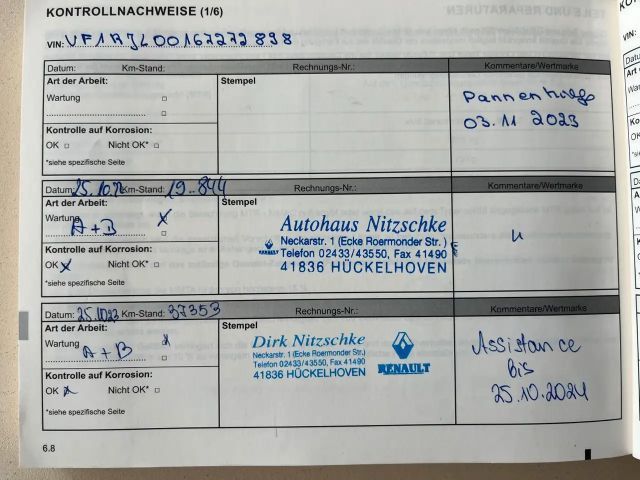 KONTROLLNACHWEISE (1/6)
VIN: VF1RJL00167272898
Datum: Km-Stand: Rechnungs-Nr.: Kommentare/Wertmarke
Art der Arbeit: Stempel
Wartung
Pannenhilfe
03.11 2023
Kontrolle auf Korrosion:
OK Nicht OK*
*siehe spezifische Seite
Datum: Km-Stand: 19..844 Rechnungs-Nr.: Kommentare/Wertmarke
Art der Arbeit: Stempel
Wartung A+B X
Autohaus Nitzschke
Neckarstr. 1 (Ecke Roermonder Str.)
RENAULT Telefon 02433/43550, Fax 41490
41836 HÜCKELHOVEN
Kontrolle auf Korrosion:
OK X Nicht OK*
*siehe spezifische Seite
Datum: 25.10.23 Km-Stand: 37353 Rechnungs-Nr.: Kommentare/Wertmarke
Art der Arbeit: Stempel
Wartung A+B X
Dirk Nitzschke
Neckarstr. 1 (Ecke Roermonder Str.)
Telefon 02433/43550, Fax 41490
41836 HÜCKELHOVEN RENAULT
Assistance
bis
25.10.2024
Kontrolle auf Korrosion:
OK X Nicht OK*
*siehe spezifische Seite
6.8